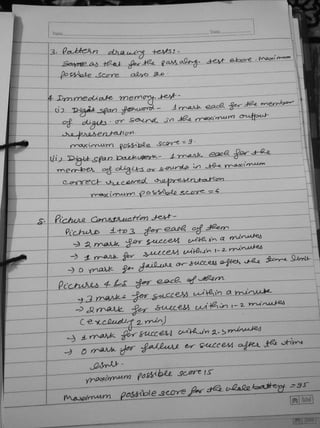 3. Pattern drawing tests:-
Same as that for the pass along test above. Maximum
possible score also 20.
4. Immediate memory test-
i) Digit span forward - 1 mark each for the member
of digits or sound in the maximum output
representation
maximum possible score = 9.
ii) Digit span backward- 1 mark each for the
member of digits or sounds in the maximum
correct recered representation
maximum possible score = 6
5. Picture Construction test-
Picture 1 to 3 for each of them
→ 2 mark for success within a minutes
→ 1 mark for success within 1-2 minutes
→ 0 mark for failure or success after the time limit
Pictures 4 & 5 for each of them
→ 3 marks for success within a minute
→ 2 mark for success within 1-2 minutes
(excluding 2 min)
→ 1 mark for success within 2-3 minutes
→ 0 mark for failure or success after the time
limit.
maximum possible score 15
Maximum possible score for the whole battery = 95